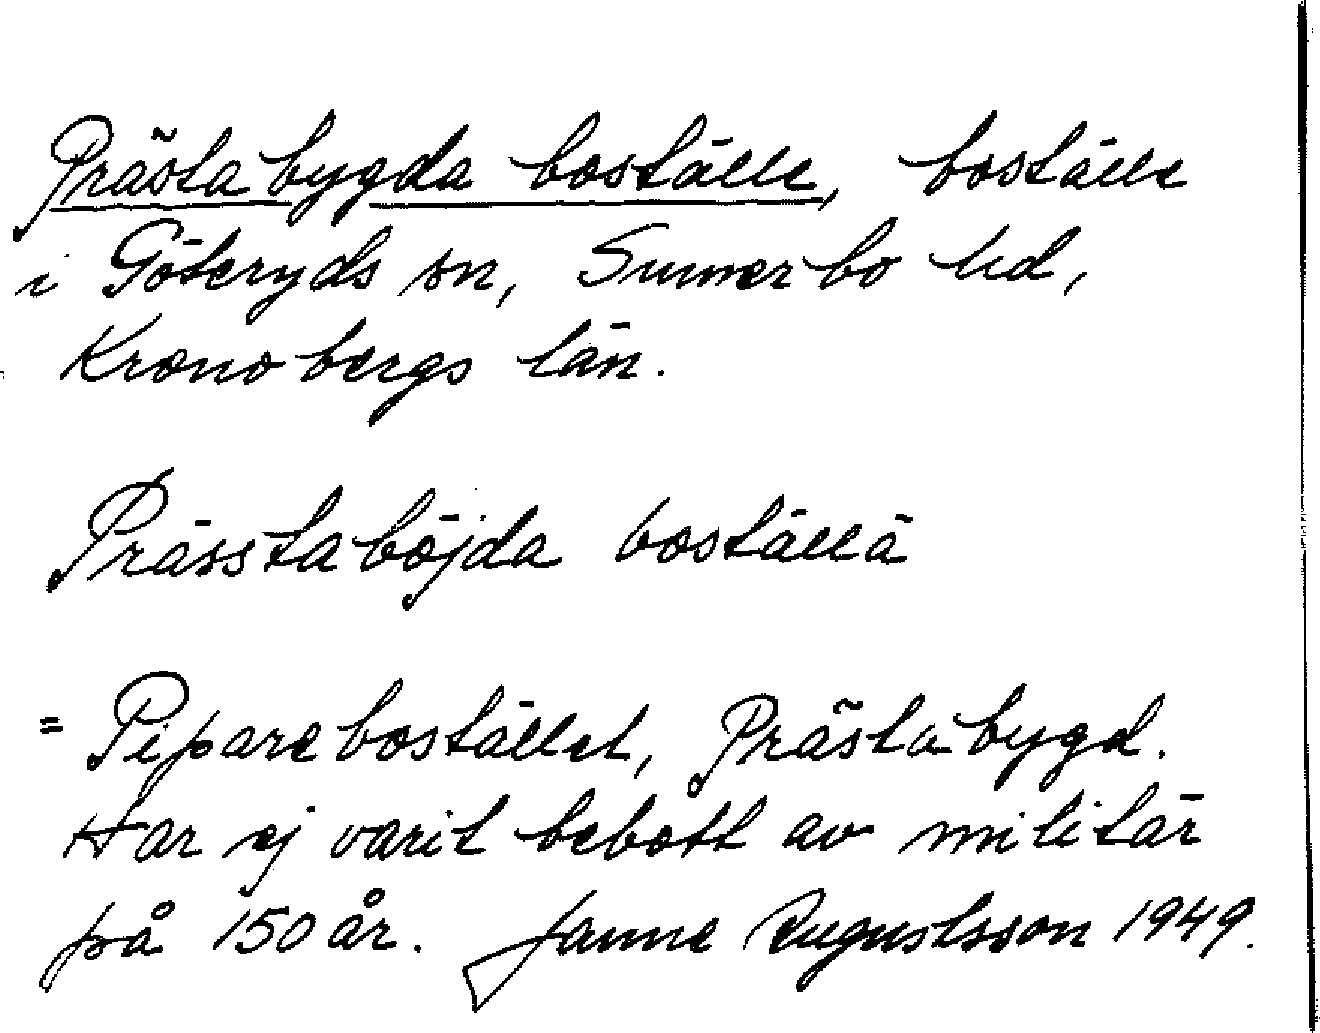 Prästabygda boställe, boställe
i Göteryds sn, Sunnerbo hd,
Kronobergs län.
Prässtaböjda boställä
= Pipareboställed, Prästabygd.
Har ej varit bebott av militär
på 150 år. Janne Augustsson 1949.